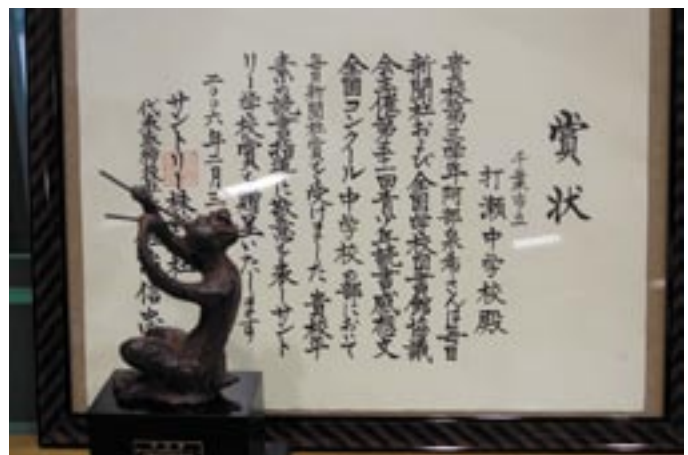 賞状
千葉市立
打瀬中学校殿
貴校第三学年阿部泉希さんは毎日
新聞社および全国学校図書館協議
会主催第五十一回青少年読書感想文
全国コンクール中学校の部において
毎日新聞社賞を受けました 貴校年
来の読書指導に敬意を表しサント
リー学校賞を贈呈いたします
二〇〇六年二月三
サントリー株
代表取締役 信忠